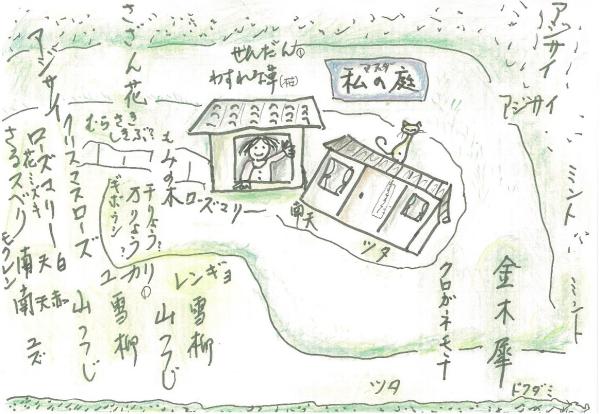 アジサイ
アジサイ
ミント
ミント
ドクダミ
金木犀
クロガネモチ
ツタ
マスダ
私の庭
せんだん
わすれな草
ツタ
南天
ローズマリー
もみの木
むらさき
しきぶ?
千りょう?
万りょう?
ギボウシ?
ユーカリ
レンギョ
雪柳
山つつじ
雪柳
山つつじ
ささん花
アジサイ
クリスマスローズ
ローズマリー
花ミズキ
さるスベリ
モクレン
南天白
南天赤
ユズ